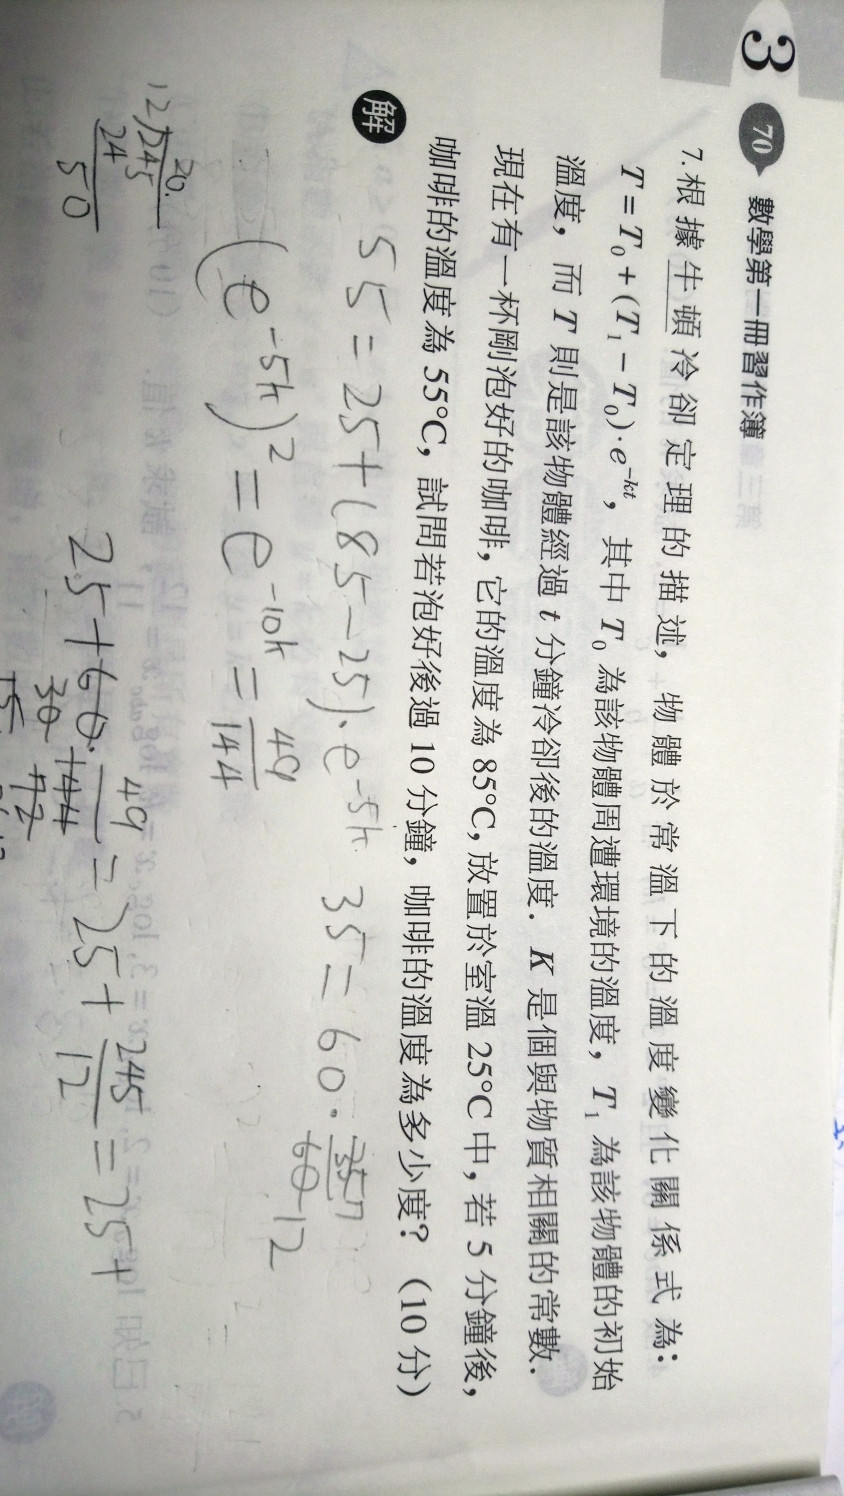 3
70 數學第一冊習作簿
7. 根據牛頓冷卻定理的描述，物體於常溫下的溫度變化關係式為：
T = T₀ + (T₁ − T₀)·e⁻ᵏᵗ，其中 T₀ 為該物體周遭環境的溫度，T₁ 為該物體的初始
溫度，而 T 則是該物體經過 t 分鐘冷卻後的溫度．K 是個與物質相關的常數．
現在有一杯剛泡好的咖啡，它的溫度為 85°C，放置於室溫 25°C 中，若 5 分鐘後，
咖啡的溫度為 55°C，試問若泡好後過 10 分鐘，咖啡的溫度為多少度？（10 分）
解
55 = 25 + (85 − 25)·e^-5k 35 = 60 · 35/60 7/12
(e^-5k)² = e^-10k = 49/144
25 + 60 · 49/144 = 25 + 245/12 = 25 +
30 72
15
20.
12)245
24
50